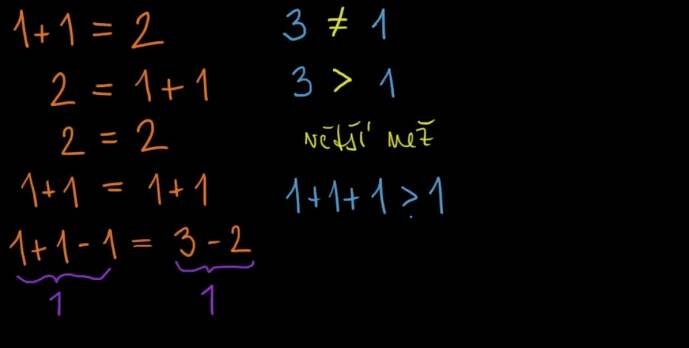 1+1 = 2
2 = 1+1
2 = 2
1+1 = 1+1
1+1-1 = 3-2
1 1
3 ≠ 1
3 > 1
větší než
1+1+1 > 1